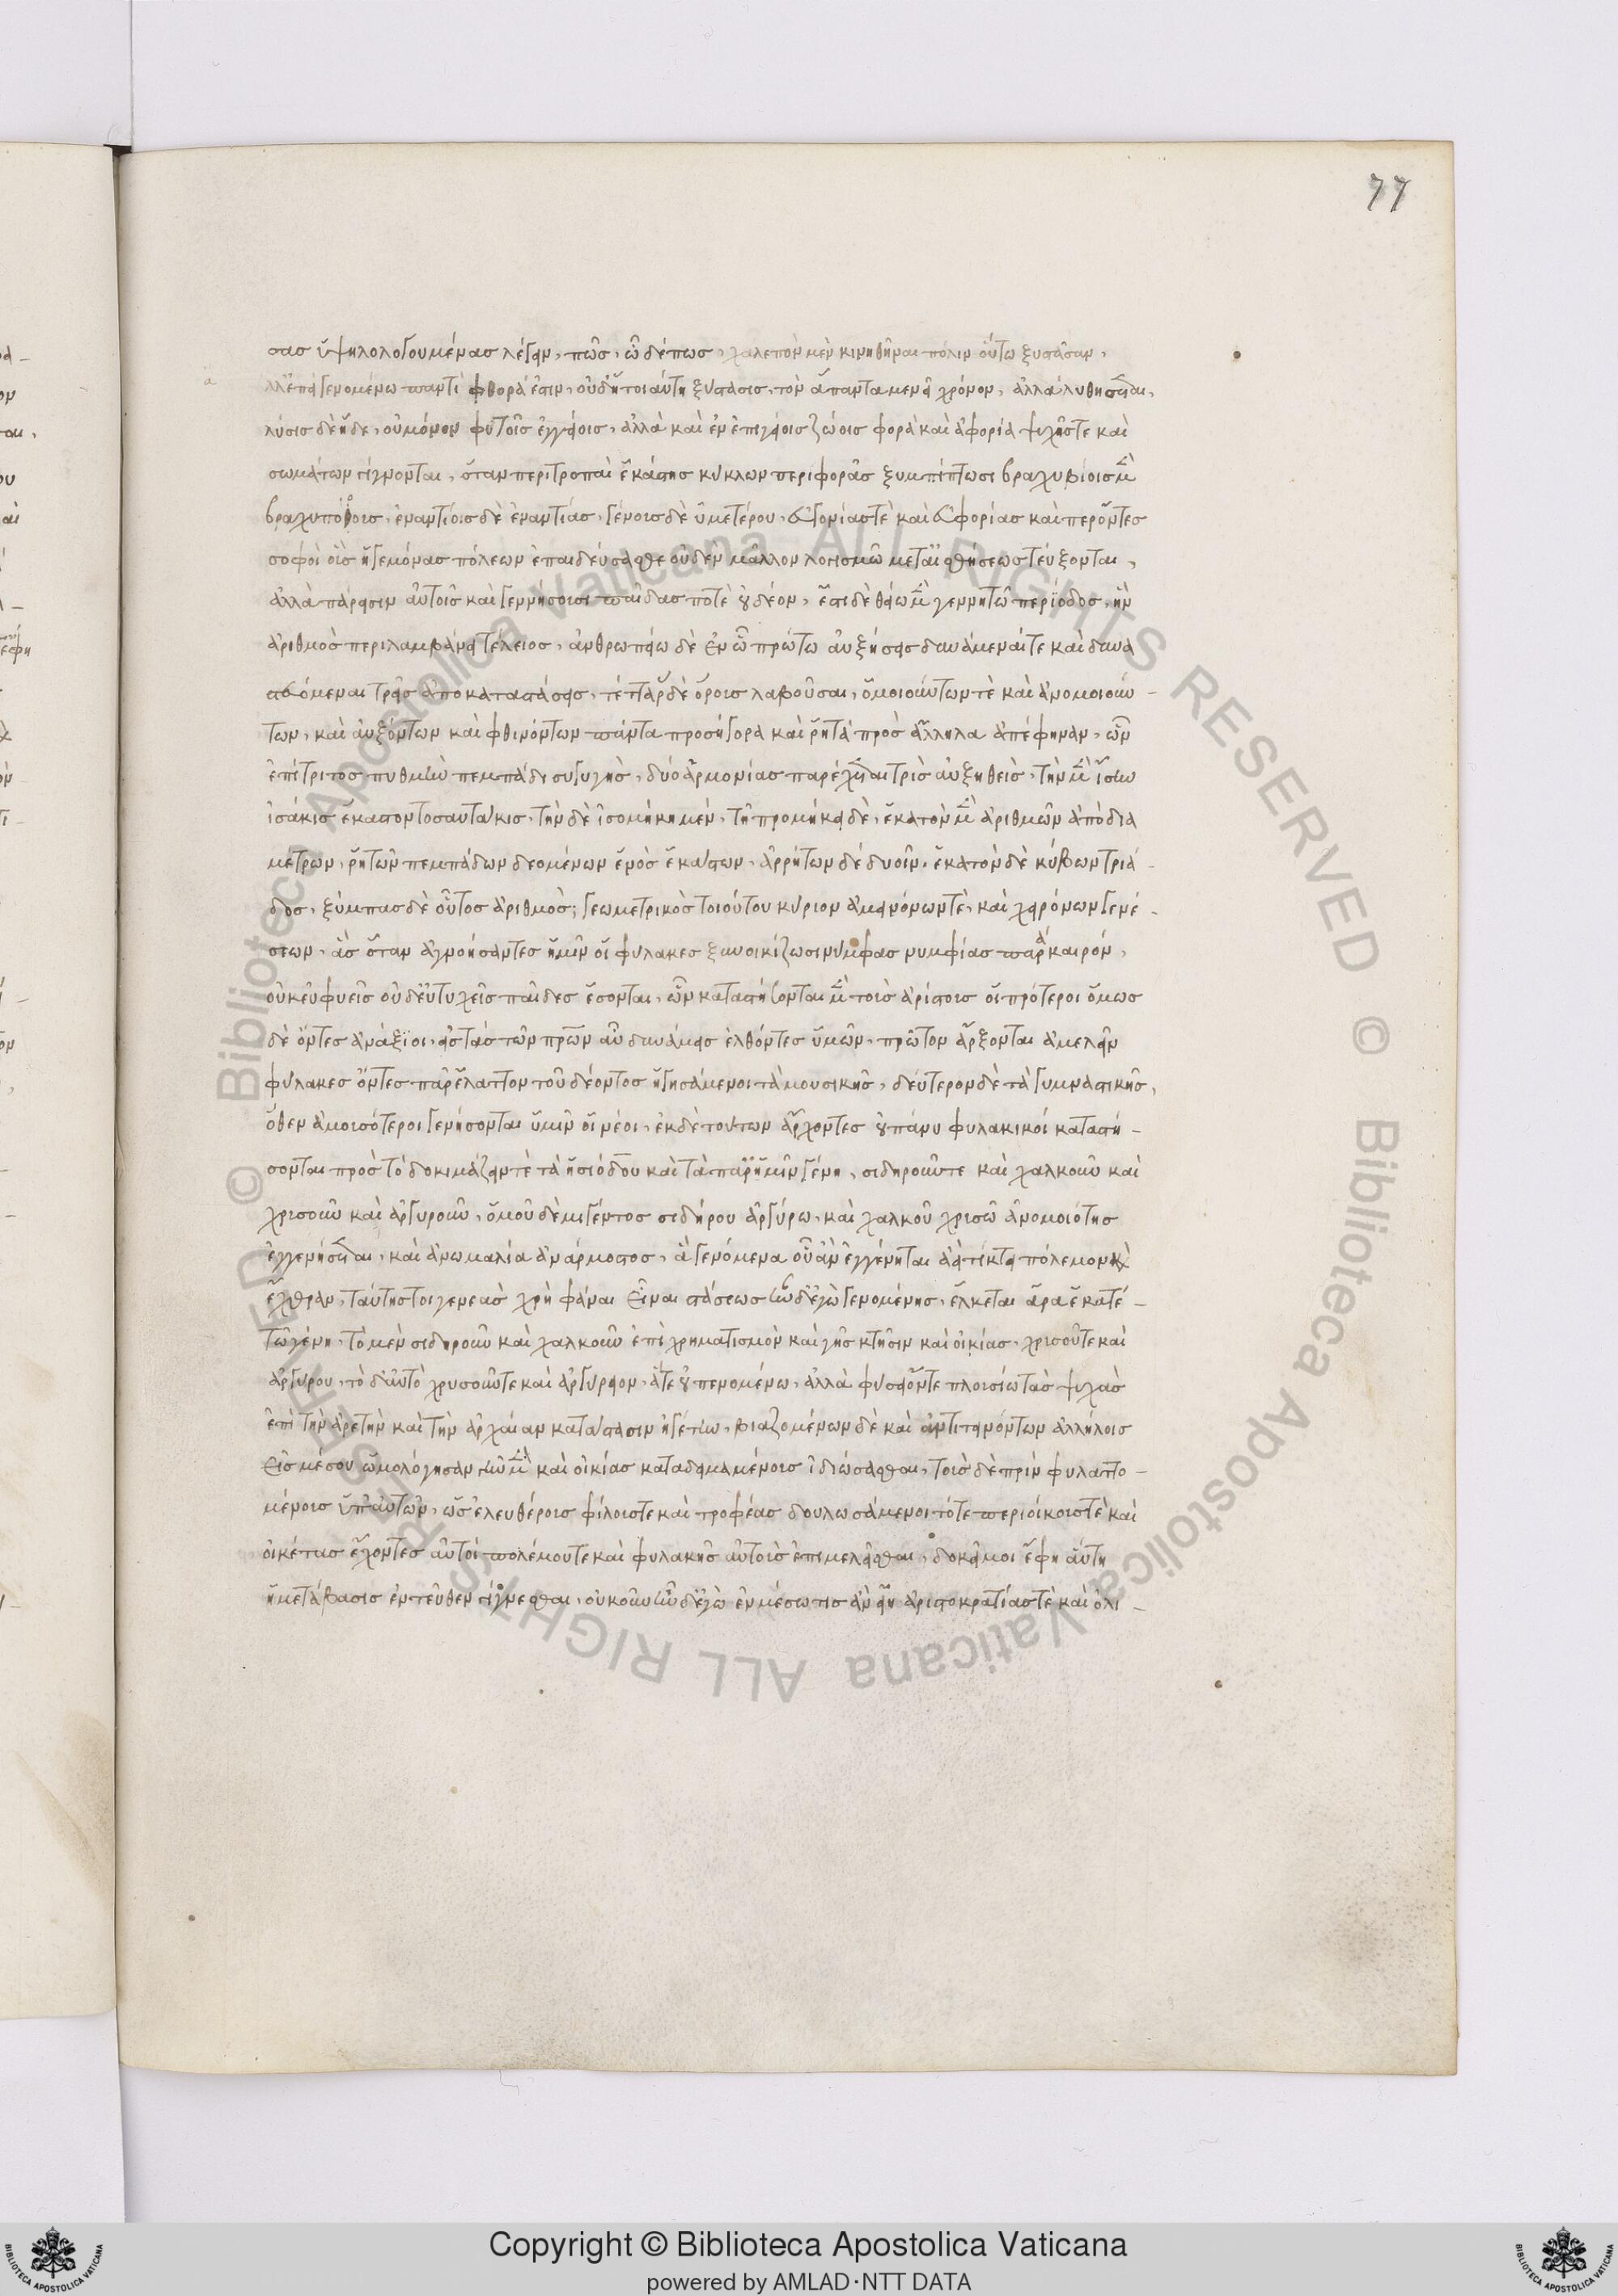 77
σας ὑψηλολογουμένας λέγειν, πῶς, ὧδέ πως, χαλεπὸν μὲν κινηθῆναι πόλιν οὕτω ξυστᾶσαν,
ἀλλ' ἐπεὶ γενομένω παντὶ φθορά ἐστιν, οὐδ' ἡ τοιαύτη ξύστασις, τὸν ἅπαντα μενεῖ χρόνον, ἀλλὰ λυθήσεται,
λύσις δὲ ἥδε, οὐ μόνον φυτοῖς ἐγγείοις, ἀλλὰ καὶ ἐν ἐπιγείοις ζώοις φορὰ καὶ ἀφορία ψυχῆς τε καὶ
σωμάτων γίγνονται, ὅταν περιτροπαὶ ἑκάστης κύκλων περιφορὰς ξυμπίπτωσι βραχυβίοις μὲν
βραχυπόρους, ἐναντίοις δὲ ἐναντίας, γένους δὲ ὑμετέρου, εὐγονίας τὲ καὶ εὐφορίας καίπερ ὄντες
σοφοὶ οἳς ἡγεμόνας πόλεων ἐπαιδεύσασθε οὐδὲν μᾶλλον λογισμῶ μετ' αἰσθήσεως τεύξονται,
ἀλλὰ πάρεισιν αὐτοῖς καὶ γεννήσουσι παῖδας ποτὲ οὐ δέον, ἔστι δὲ θείω μὲν γεννητῶ περίοδος, ἣν
ἀριθμὸς περιλαμβάνει τέλειος, ἀνθρωπείω δὲ ἐν ᾧ πρώτω αὐξήσεις δυνάμεναί τε καὶ δυνα
στευόμεναι τρεῖς ἀποκαταστάσεις, τέτταρας δὲ ὅρους λαβοῦσαι, ὁμοιούντων τὲ καὶ ἀνομοιούν -
των, καὶ αὐξόντων καὶ φθινόντων πάντα προσήγορα καὶ ῥητὰ πρὸς ἄλληλα ἀπέφηναν, ὧν
ἐπίτριτος πυθμὴν πεμπάδι συζυγὴς, δύο ἁρμονίας παρέχεται τρὶς αὐξηθεὶς, τὴν μὲν ἴσην
ἰσάκις ἑκατὸν τοσαυτάκις, τὴν δὲ ἰσομήκη μὲν, τῆ προμήκει δὲ, ἑκατὸν μὲν ἀριθμῶν ἀπὸ δια
μέτρων, ῥητῶν πεμπάδων δεομένων ἑνὸς ἑκάστων, ἀρρήτων δὲ δυοῖν. ἑκατὸν δὲ κύβων τριά -
δος, ξύμπας δὲ οὗτος ἀριθμὸς, γεωμετρικὸς τοιούτου κύριον ἀμεινόνων τὲ, καὶ χειρόνων γενέ -
σεων, ἃς ὅταν ἀγνοήσαντες ἡμῖν οἱ φύλακες ξυνοικίζωσι νύμφας νυμφίας παρὰ καιρόν,
οὐκ εὐφυεῖς οὐδ' εὐτυχεῖς παῖδες ἔσονται, ὧν καταστήσονται μὲν τοὺς ἀρίστους οἱ πρότεροι ὅμως
δὲ ὄντες ἀνάξιοι, εἰς τὰς τῶν πρων αὖ δυνάμεις ἐλθόντες ὑμῶν, πρῶτον ἄρξονται ἀμελεῖν
φύλακες ὄντες παρ' ἔλαττον τοῦ δέοντος ἡγησάμενοι τὰ μουσικῆς, δεύτερον δὲ τὰ γυμναστικῆς,
ὅθεν ἀμουσότεροι γενήσονται ὑμῖν οἱ νέοι, ἐκ δὲ τούτων ἄρχοντες οὐ πάνυ φυλακικοί καταστή -
σονται πρὸς τὸ δοκιμάζειν τὲ τὰ ἡσιόδου καὶ τὰ παρ' ἡμῖν γένη, σιδηροῦν τε καὶ χαλκοῦν καὶ
χρυσοῦν καὶ ἀργυροῦν, ὁμοῦ δὲ μιγέντος σιδήρου ἀργύρω, καὶ χαλκοῦ χρυσῶ ἀνομοιότης
ἐγγενήσεται, καὶ ἀνωμαλία ἀνάρμοστος, ἃ γενόμενα οὗ ἂν ἐγγένηται ἀεὶ τίκτει πόλεμον καὶ
ἔχθραν, ταύτης τοι γενεὰς χρὴ φάναι εἶναι στάσεως ἦν δ' ἐγὼ γενομένης, ἕλκεται ἄρα ἑκατέ -
τω γένη, τὸ μὲν σιδηροῦν καὶ χαλκοῦν ἐπὶ χρηματισμὸν καὶ γῆς κτῆσιν καὶ οἰκίας, χρυσοῦ τε καὶ
ἀργύρου, τὸ δ' αὐτὸ χρυσοῦν τε καὶ ἀργύρειον, ἅτε οὐ πενομένω, ἀλλὰ φύσει ὄντε πλουσίω τὰς ψυχὰς
ἐπὶ τὴν ἀρετὴν καὶ τὴν ἀρχαίαν κατάστασιν ἠγέτην, βιαζομένων δὲ καὶ ἀντιτεινόντων ἀλλήλοις
εἰς μέσου ὡμολόγησαν γῆν μὲν καὶ οἰκίας κατανειμαμένους ἰδιώσασθαι, τοὺς δὲ πρὶν φυλαττο -
μένους ὑπ' αὐτῶν, ὡς ἐλευθέρους φίλους τε καὶ τροφέας δουλωσάμενοι τότε περιοίκους τὲ καὶ
οἰκέτας ἔχοντες αὐτοὶ πολέμου τε καὶ φυλακῆς αὐτοῖς ἐπιμελεῖσθαι, δοκεῖ μοι ἔφη αὕτη
ἡ μετάβασις ἐντεῦθεν γίγνεσθαι, οὐκοῦν ἦν δ' ἐγὼ ἐν μέσω τις ἂν εἴη ἀριστοκρατίας τὲ καὶ ὀλι -
Copyright © Biblioteca Apostolica Vaticana
powered by AMLAD·NTT DATA